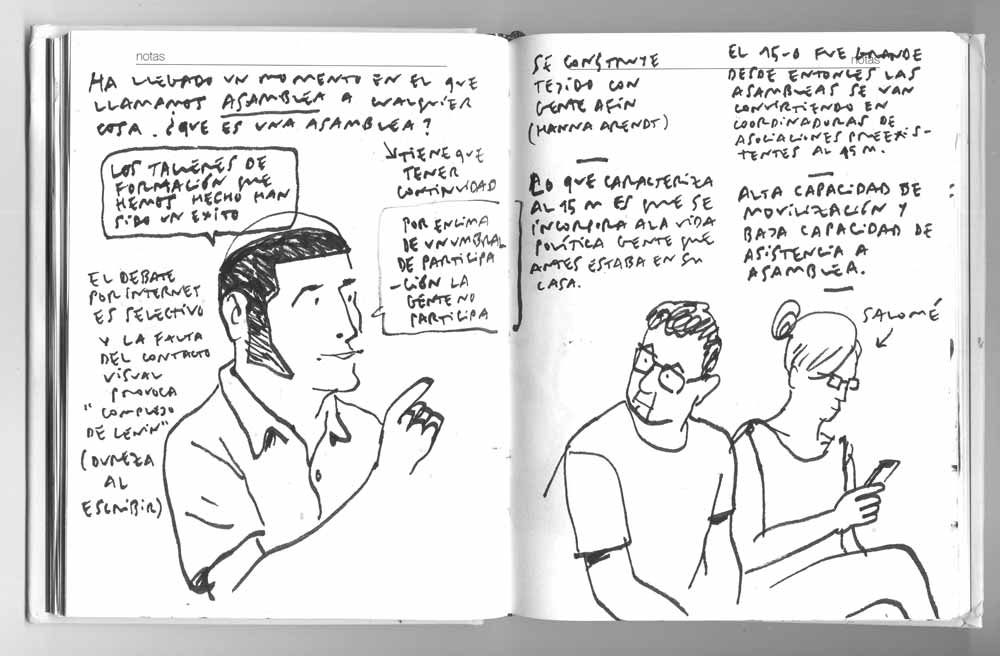 notas
HA LLEGADO UN MOMENTO EN EL QUE
LLAMAMOS ASAMBLEA A CUALQUIER
COSA. ¿QUE ES UNA ASAMBLEA?
LOS TALLERES DE
FORMACIÓN QUE
HEMOS HECHO HAN
SIDO UN EXITO
TIENE QUE
TENER
CONTINUIDAD
POR ENCIMA
DE UN UMBRAL
DE PARTICIPA
-CIÓN LA
GENTE NO
PARTICIPA
EL DEBATE
POR INTERNET
ES SELECTIVO
Y LA FALTA
DEL CONTACTO
VISUAL
PROVOCA
"COMPLEJO
DE LENIN"
(DUREZA
AL
ESCRIBIR)
notas
SE CONSTRUYE
TEJIDO CON
GENTE AFIN
(HANNA ARENDT)
LO QUE CARACTERIZA
AL 15 M ES QUE SE
INCORPORA A LA VIDA
POLÍTICA GENTE QUE
ANTES ESTABA EN SU
CASA.
EL 15-O FUE GRANDE
DESDE ENTONCES LAS
ASAMBLEAS SE VAN
CONVIRTIENDO EN
COORDINADORAS DE
ASOCIACIONES PREEXIS-
TENTES AL 15 M.
ALTA CAPACIDAD DE
MOVILIZACIÓN Y
BAJA CAPACIDAD DE
ASISTENCIA A
ASAMBLEA.
SALOMÉ